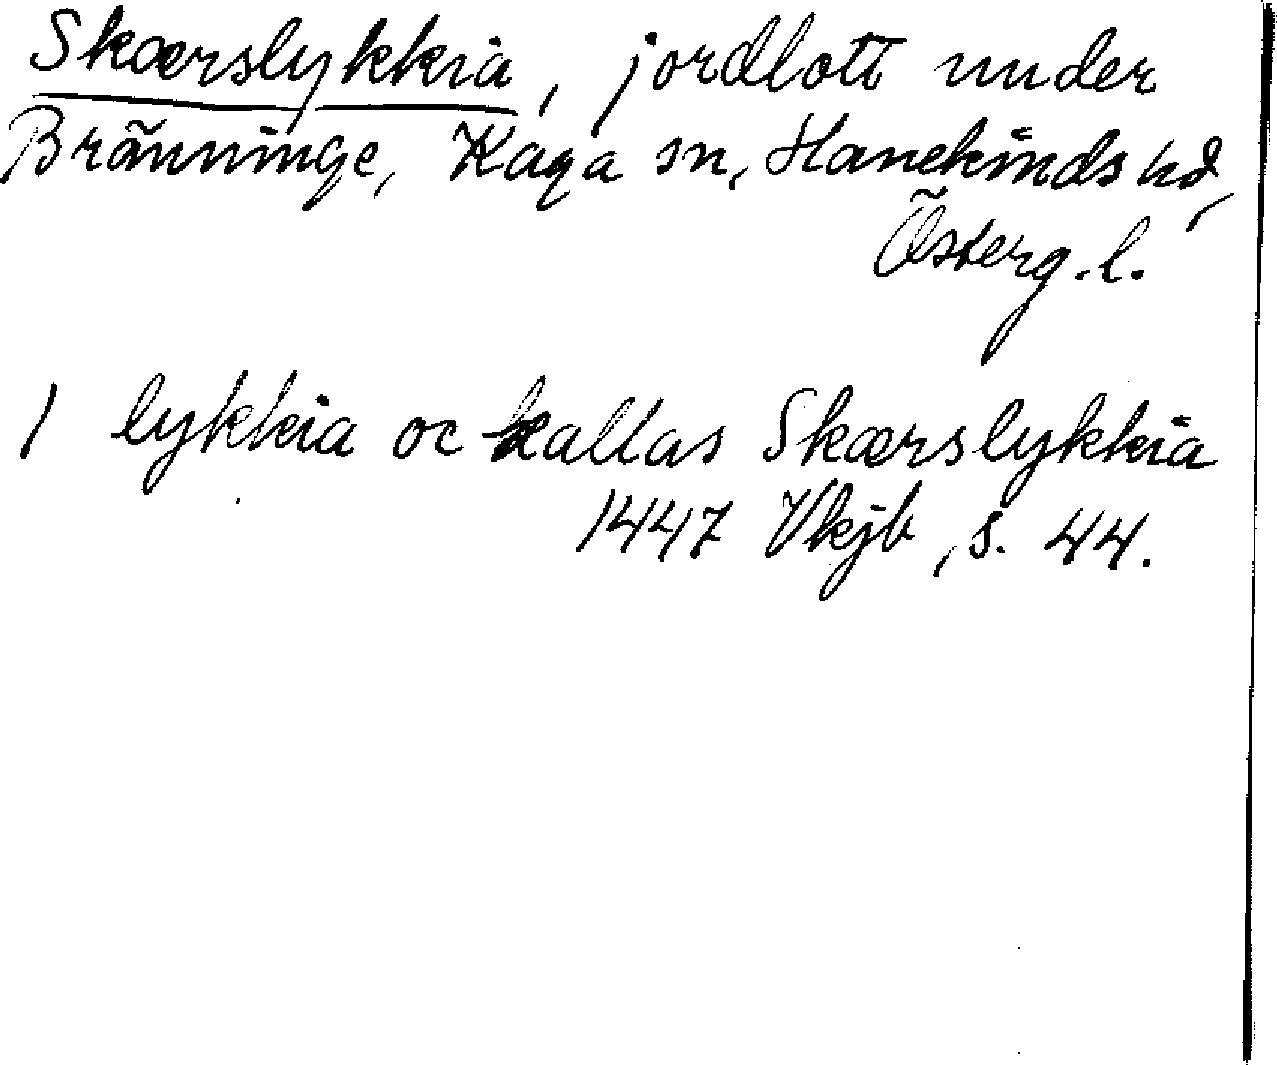 Skærslykkia, jordlott under
Bränninge, Kaga sn, Hanekinds hd,
Österg. l.
1 lykkia oc kallas Skærslykkia
1447 Vkjb, s. 44.